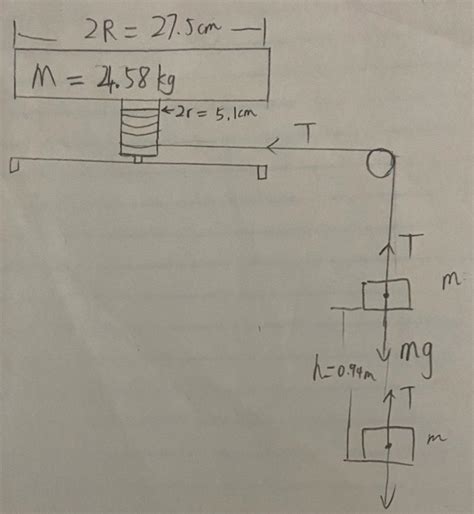 2R = 27.5cm
M = 4.58kg
2r = 5.1cm
T
T
m
mg
h=0.94m
T
m